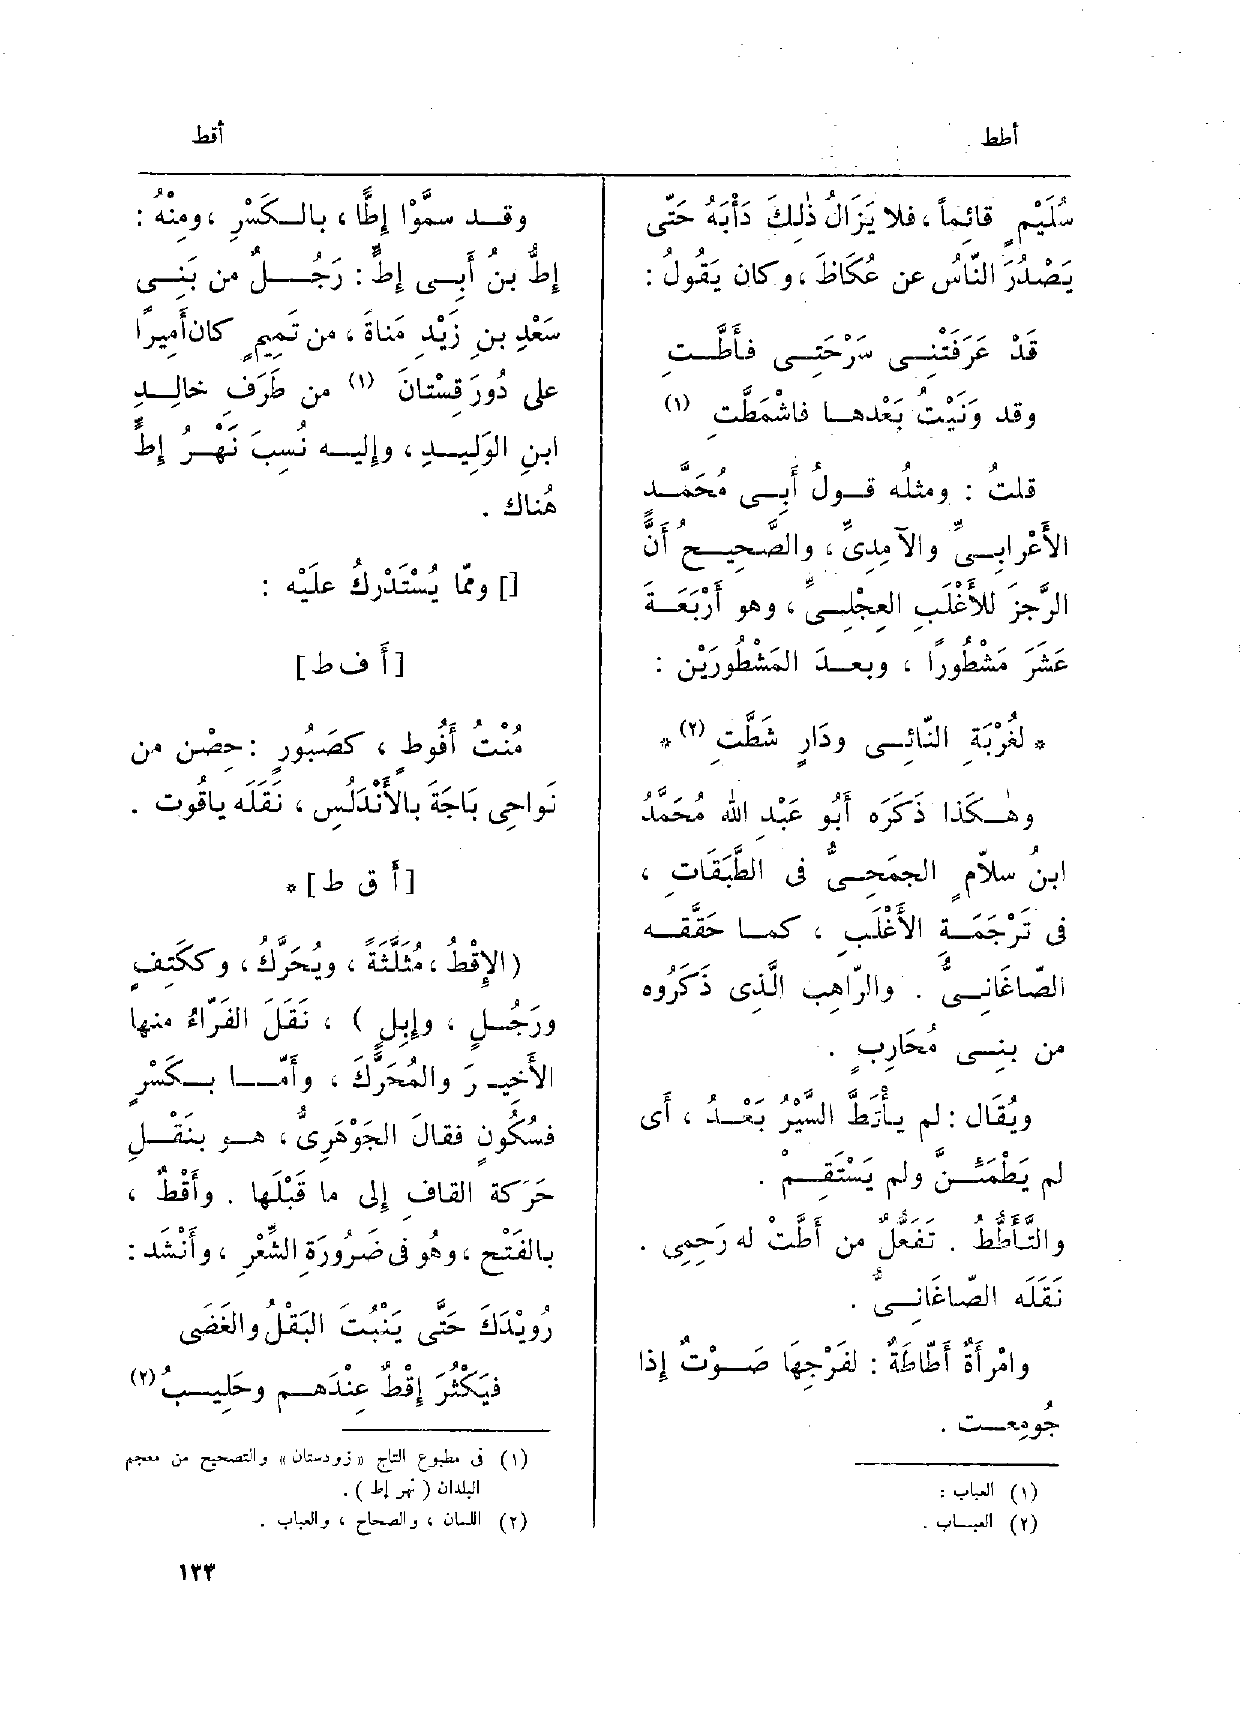 أطط
أقط
سُلَيْمٍ قائماً ، فلا يَزَالُ ذٰلِكَ دَأْبَهُ حَتّى
يَصْدُرَ النّاسُ عن عُكَاظَ ، وكان يَقُولُ :
قَدْ عَرَفَتْنِــى سَرْحَتِــى فأَطَّــتِ
وقد وَنَيْتُ بَعْدهــا فاشْمَطَّتِ (١)
قلتُ : ومثلُه قــولُ أَبِــى مُحَمَّــد
الأَعْرابِــىِّ والآمِدِىِّ ، والصَّحِيــحُ أَنَّ
الرَّجزَ للأَغْلَبِ العِجْلِــىِّ ، وهو أَرْبَعَــةَ
عَشَرَ مَشْطُورًا ، وبعــدَ المَشْطُورَيْنِ :
* لغُرْبَةِ النّائِــى ودَارٍ شَطَّتِ (٢) *
وهٰــكَذا ذَكَرَه أَبُو عَبْدِ الله مُحَمَّدُ
ابنُ سلاّمٍ الجمَحِــىُّ فى الطَّبَقَاتِ ،
فى تَرْجَمَــةِ الأَغْلَبِ ، كمــا حَقَّقــه
الصّاغَانِــىُّ . والرّاهِب الَّذِى ذَكَرُوه
من بنِــى مُحَارِبٍ .
ويُقَال : لم يأْتَطَّ السَّيْرُ بَعْــدُ ، أَى
لم يَطْمَئِــنَّ ولم يَسْتَقِــمْ .
والتَّأَطُّطُ . تَفَعُّلٌ من أَطَّتْ له رَحِمِى .
نَقَلَه الصّاغَانِــىُّ .
وامْرأَةٌ أَطّاطَةٌ : لفَرْجِهَا صَــوْتٌ إذا
جُومِعــت .
(١) العباب :
(٢) العبــاب .
وقــد سمَّوْا إِطًّا ، بالــكَسْرِ ، ومِنْهُ :
إِطُّ بنُ أَبِــى إِطٍّ : رَجُــلٌ من بَنِــى
سَعْدِ بنِ زَيْدِ مَناةَ ، من تَمِيمٍ كان أَمِيرًا
على دُورَقِسْتانَ (١) من طَرَفِ خالِــدِ
ابنِ الوَلِيــدِ ، وإليــه نُسِبَ نَهْــرُ إِطٍّ
هُناك .
[] وممّا يُسْتَدْركُ علَيْه :
[أَ ف ط]
مُنْتُ أَفُوط ، كصَبُورٍ : حِصْن من
نَواحِى بَاجَةَ بالأَنْدَلُسِ ، نَقَلَه ياقُوت .
[أَ ق ط] *
( الإِقْطُ ، مُثَلَّثَةً ، ويُحَرَّكُ ، وككَتِفٍ
ورَجُــلٍ ، وإبِلٍ ) ، نَقَلَ الفَرّاءُ منها
الأَخِيــرَ والمُحَرَّكَ ، وأَمّــا بــكَسْرٍ
فسُكُونٍ فقالَ الجَوْهَرِىُّ ، هــو بنَقْــلِ
حَرَكة القاف إلى ما قَبْلَها . وأَقْطٌ ،
بالفَتْح ، وهُو فى ضَرُورَةِ الشِّعْرِ ، وأَنْشَد :
رُوَيْدَكَ حَتَّى يَنْبُتَ البَقْلُ والغَضَى
فيَكْثُرَ إِقْطٌ عِنْدَهــم وحَلِيــبُ (٢)
(١) فى مطبوع التاج « زودستان » والتصحيح من معجم
البلدان ( نهر إط ) .
(٢) اللسان ، والصحاح ، والعباب .
١٣٣